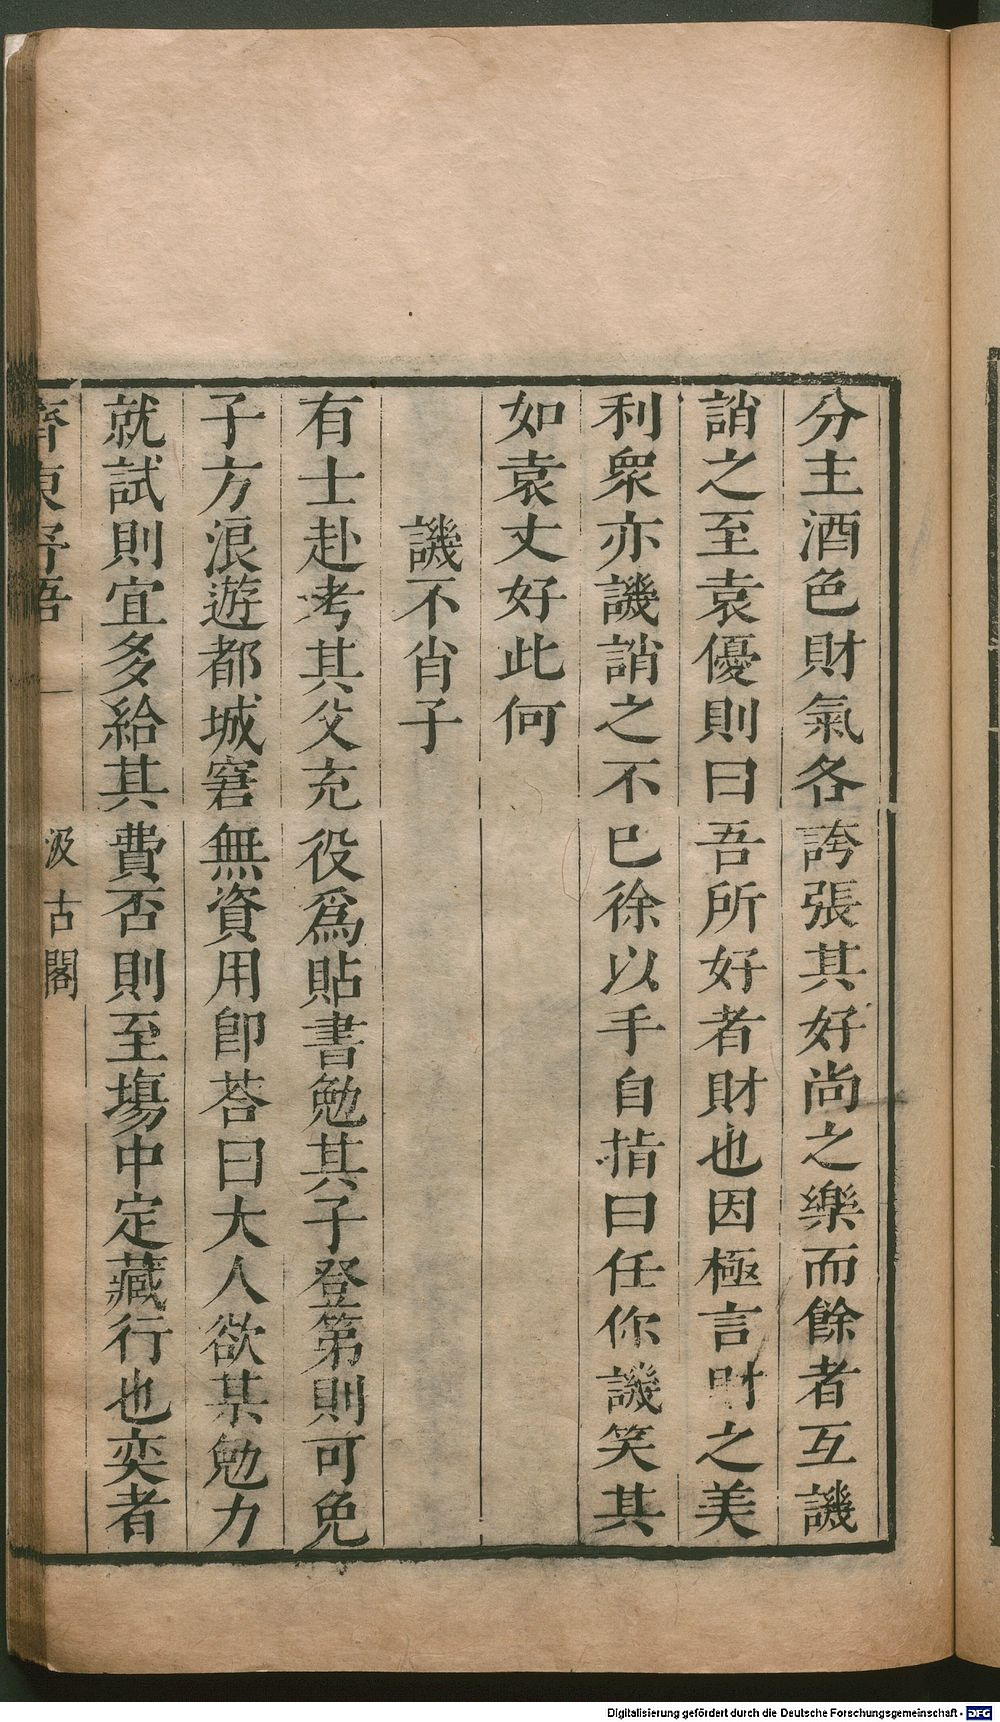 分主酒色財氣各誇張其好尚之樂而餘者互譏
誚之至袁優則曰吾所好者財也因極言財之美
利衆亦譏誚之不巳徐以手自指曰任你譏笑其
如袁丈好此何
譏不肖子
有士赴考其父充役爲貼書勉其子登第則可免
子方浪遊都城窘無資用卽荅曰大人欲某勉力
就試則宜多給其費否則至塲中定藏行也奕者
齊東野語
一
汲古閣
Digitalisierung gefördert durch die Deutsche Forschungsgemeinschaft - DFG